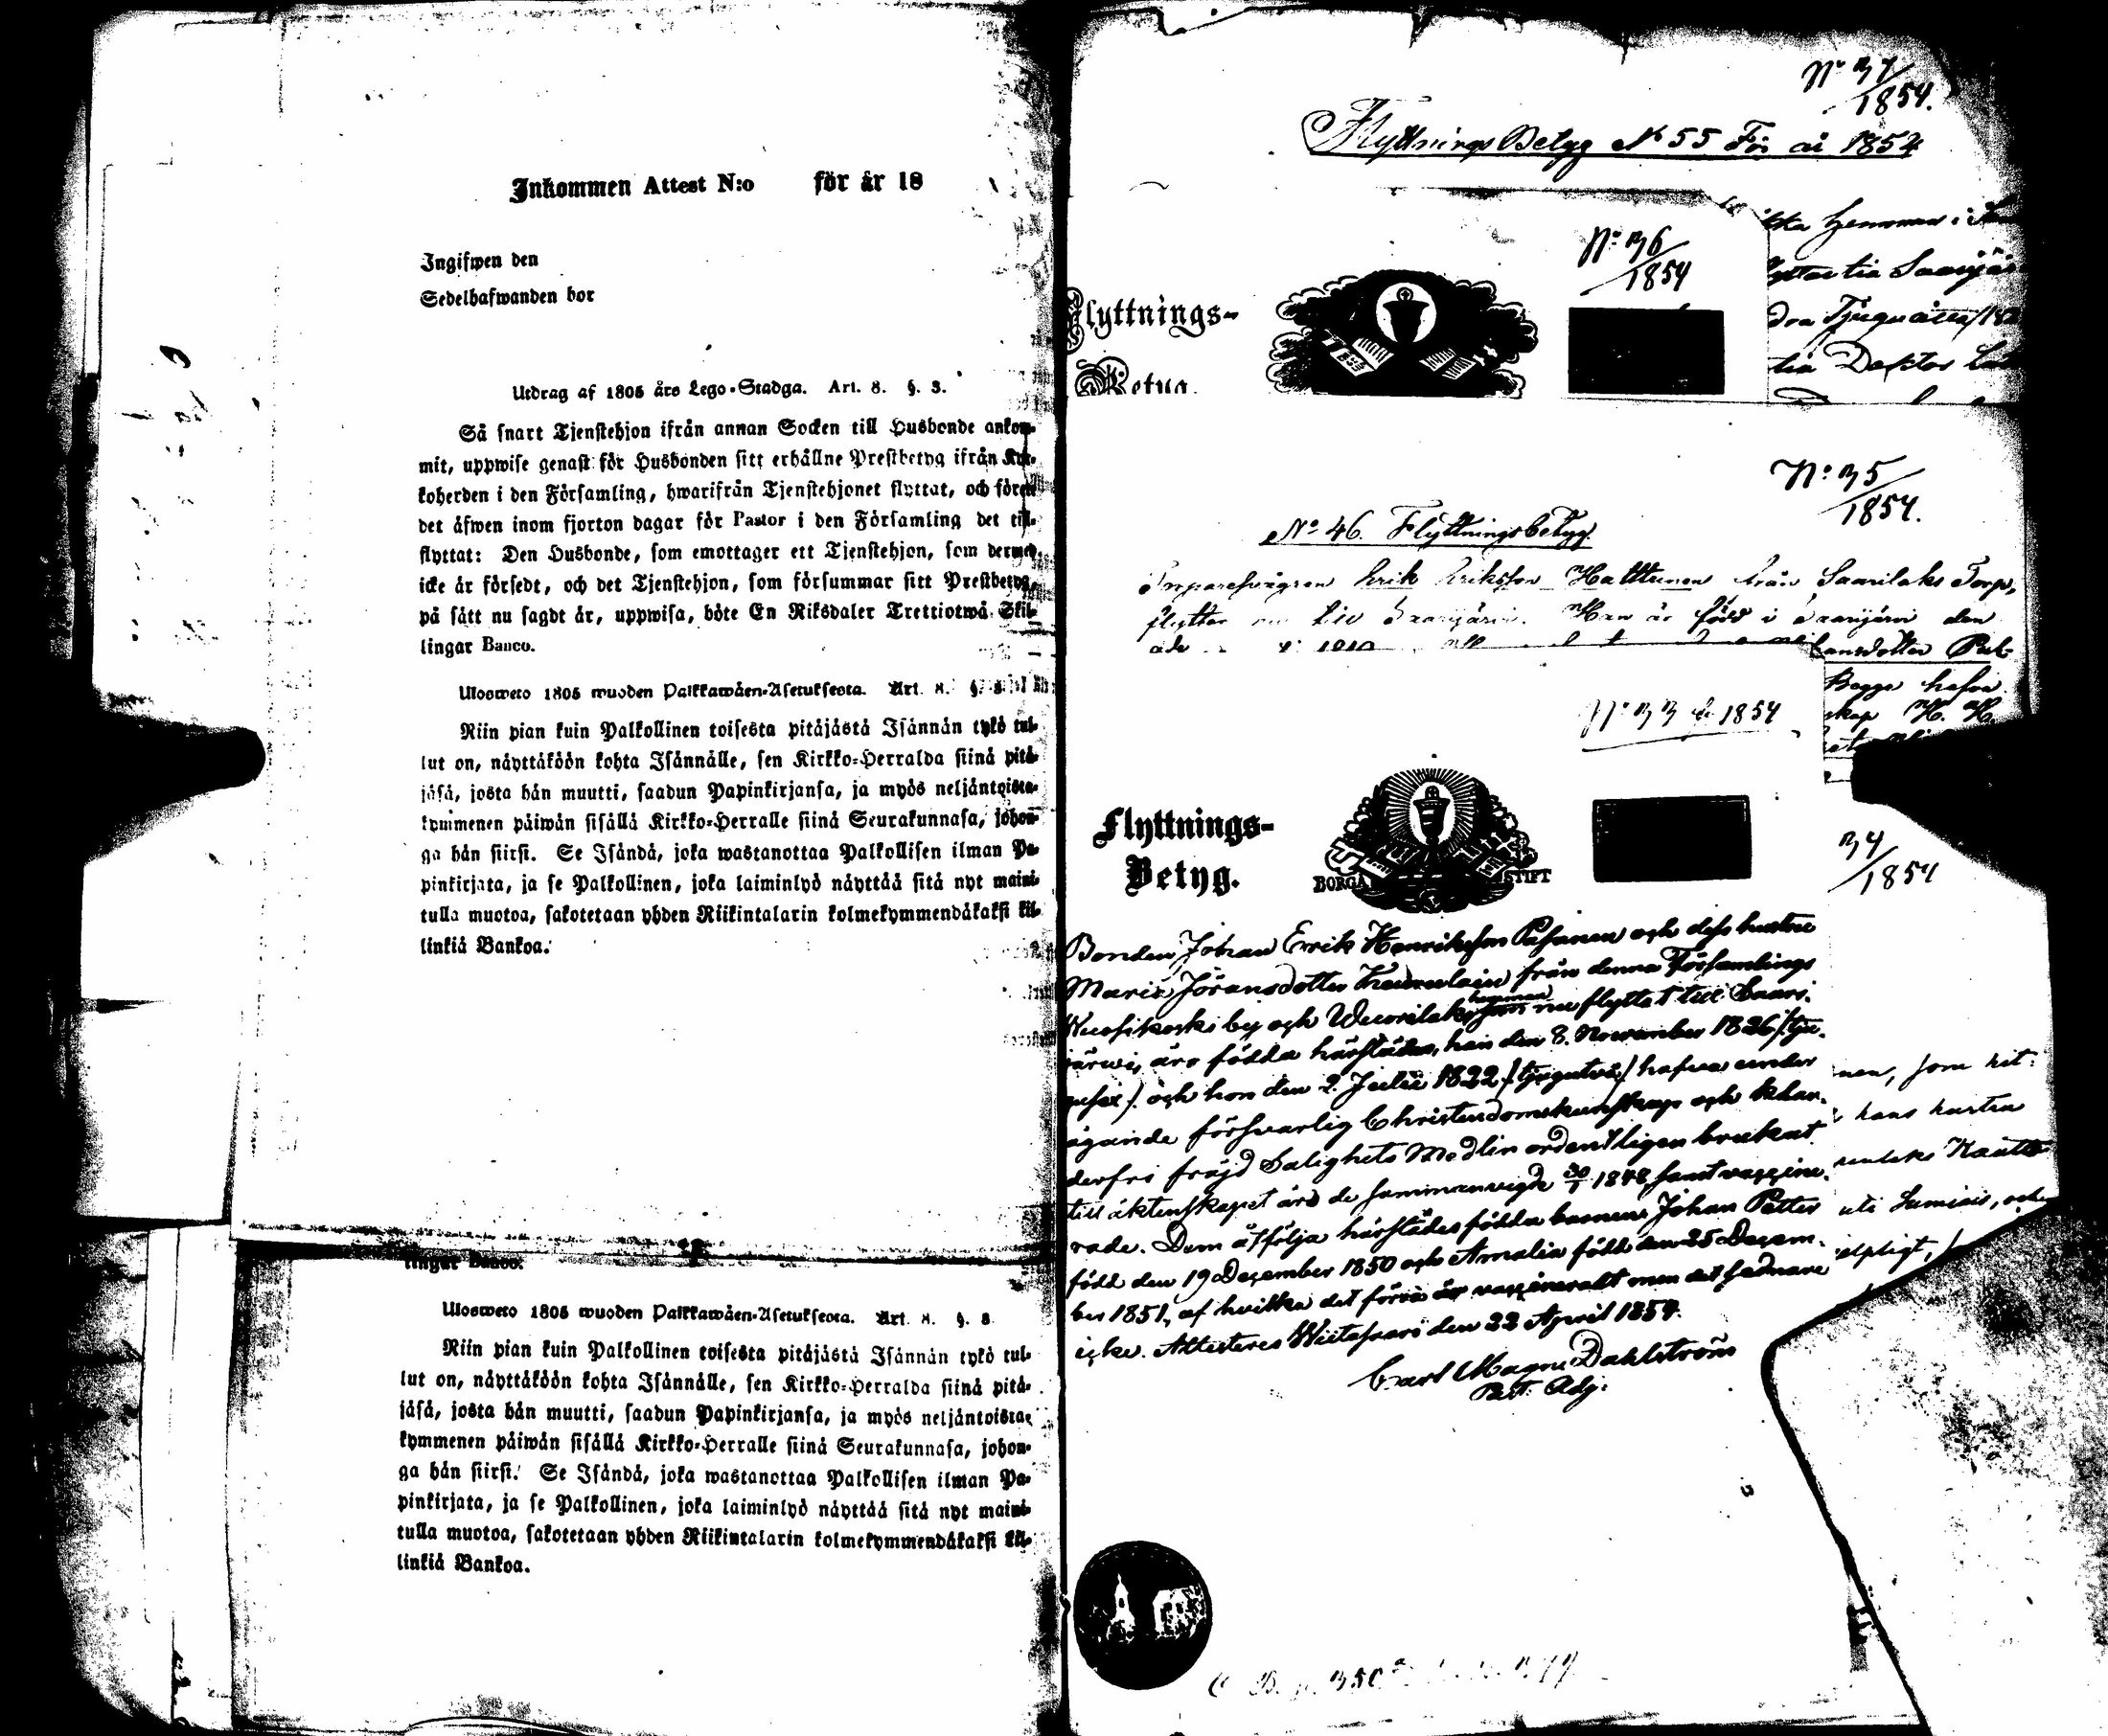 Inkommen Attest N:o för år 18
Ingifwen den
Sedelhafwanden bor
Utdrag af 1805 års Lego-Stadga. Art. 8. §. 3.
Så snart Tjenstehjon ifrån annan Socken till Husbonde ankom-
mit, uppwise genast för Husbonden sitt erhållne Prestbetyg ifrån Kyr-
koherden i den Församling, hwarifrån Tjenstehjonet flyttat, och förete
det äfwen inom fjorton dagar för Pastor i den Församling det till-
flyttat: Den Husbonde, som emottager ett Tjenstehjon, som dermed
icke är försedt, och det Tjenstehjon, som försummar sitt Prestbetyg,
på sätt nu sagdt är, uppwisa, böte En Riksdaler Trettiotwå Skil-
lingar Banco.
Ulosweto 1805 wuoden Palkkawäen-Asetuksesta. Art. 8. §. 3.
Niin pian kuin Palkollinen toisesta pitäjästä Isännän tykö tul-
lut on, näyttäköön kohta Isännälle, sen Kirkko-Herralda siinä pitä-
jäsä, josta hän muutti, saadun Papinkirjansa, ja myös neljäntoista-
kymmenen päiwän sisällä Kirkko-Herralle siinä Seurakunnasa, johon-
ga hän siirsi. Se Isändä, joka wastanottaa Palkollisen ilman Pa-
pinkirjata, ja se Palkollinen, joka laiminlyö näyttää sitä nyt maini-
tulla muotoa, sakotetaan yhden Riikintalarin kolmekymmendäkaksi kil-
linkiä Bankoa.
lingar Banco.
Ulosweto 1805 wuoden Palkkawäen-Asetuksesta. Art. 8. §. 3
Niin pian kuin Palkollinen toisesta pitäjästä Isännän tykö tul-
lut on, näyttäköön kohta Isännälle, sen Kirkko-Herralda siinä pitä-
jäsä, josta hän muutti, saadun Papinkirjansa, ja myös neljäntoista-
kymmenen päiwän sisällä Kirkko-Herralle siinä Seurakunnasa, johon-
ga hän siirsi. Se Isändä, joka wastanottaa Palkollisen ilman Pa-
pinkirjata, ja se Palkollinen, joka laiminlyö näyttää sitä nyt maini-
tulla muotoa, sakotetaan yhden Riikintalarin kolmekymmendäkaksi kil-
linkiä Bankoa.
No 37/1854.
Flyttnings Betyg No 55 För år 1854
No 36/1854
Flyttnings-
Betyg.
hemman i
Saarijär
Tjuguåtta
No 35/1854.
No 46. Flyttningsbetyg.
Erik Eriksson Hatttunen från Saarilaks Torp,
flyttar nu till Saarijärvi. Han är född i Saarijärvi den
No 33 1854
Flyttnings-
Betyg.
BORGÅ STIFT
34/1854
Bonden Johan Errik Henriksson Pasanen och dess hustru
Maria Jöransdotter från denna Församlings
Wuosikoski by och hemman nu flyttat till Saari-
järwi, äro födda härstädes, han den 8. November 1826 /: tju-
gusex/. och hon den 2. Julii 1822 /:tjugutvå/ hafva under
ägande försvarlig Christendomskunskap och klan-
derfri fräjd Salighets Medlen ordentligen brukat
till äktenskapet äro de sammanvigde 30/1 1848 samt vaccine-
rade. Dem åtfölja härstädes födda barnen: Johan Petter
född den 19 December 1850 och Amalia född den 25 Decem-
ber 1851, af hvilka det förra är vaccineradt men det sednare
icke. Attesteres Wiitasaari den 22 April 1854.
Carl Magnus Dahlström
Past. Adj.
som hit
hans hustru